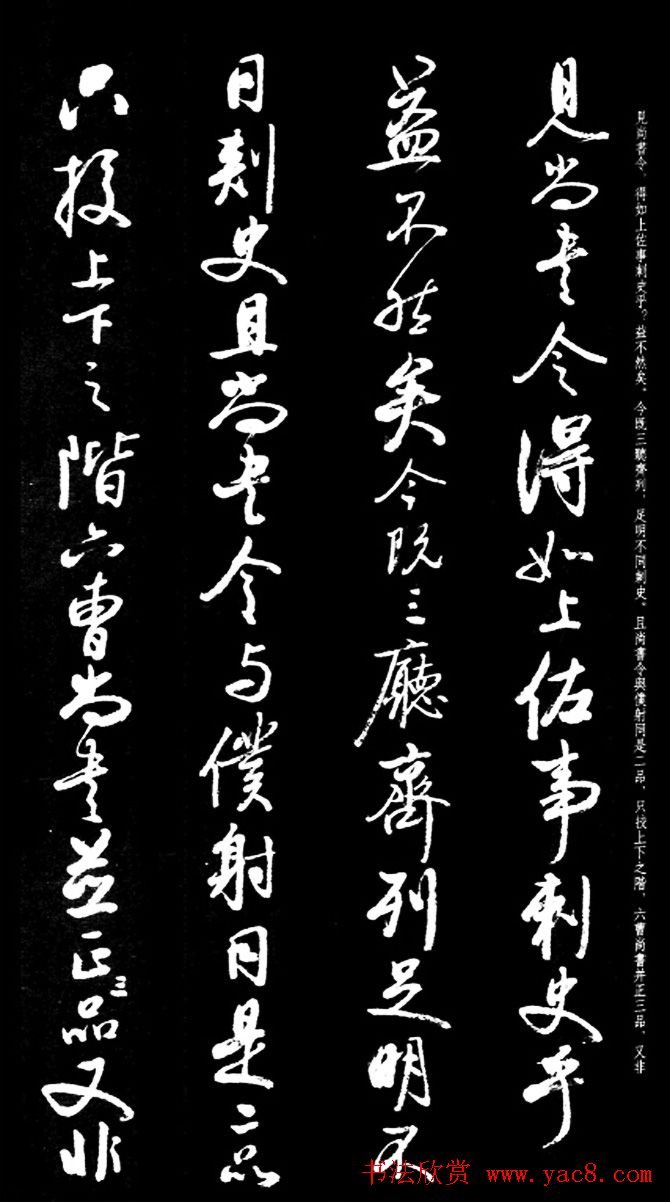 見尚書令、得如上佐事刺史乎？益不然矣。今既三廳齊列，足明不同刺史。且尚書令與僕射同是二品，只挍上下之階，六曹尚書并正三品，又非
見尚書令得如上佐事刺史乎
益不然矣今既三廳齊列足明不
同刺史且尚書令与僕射同是二品
只挍上下之階六曹尚書並正三品又非
书法欣赏 www.yac8.com